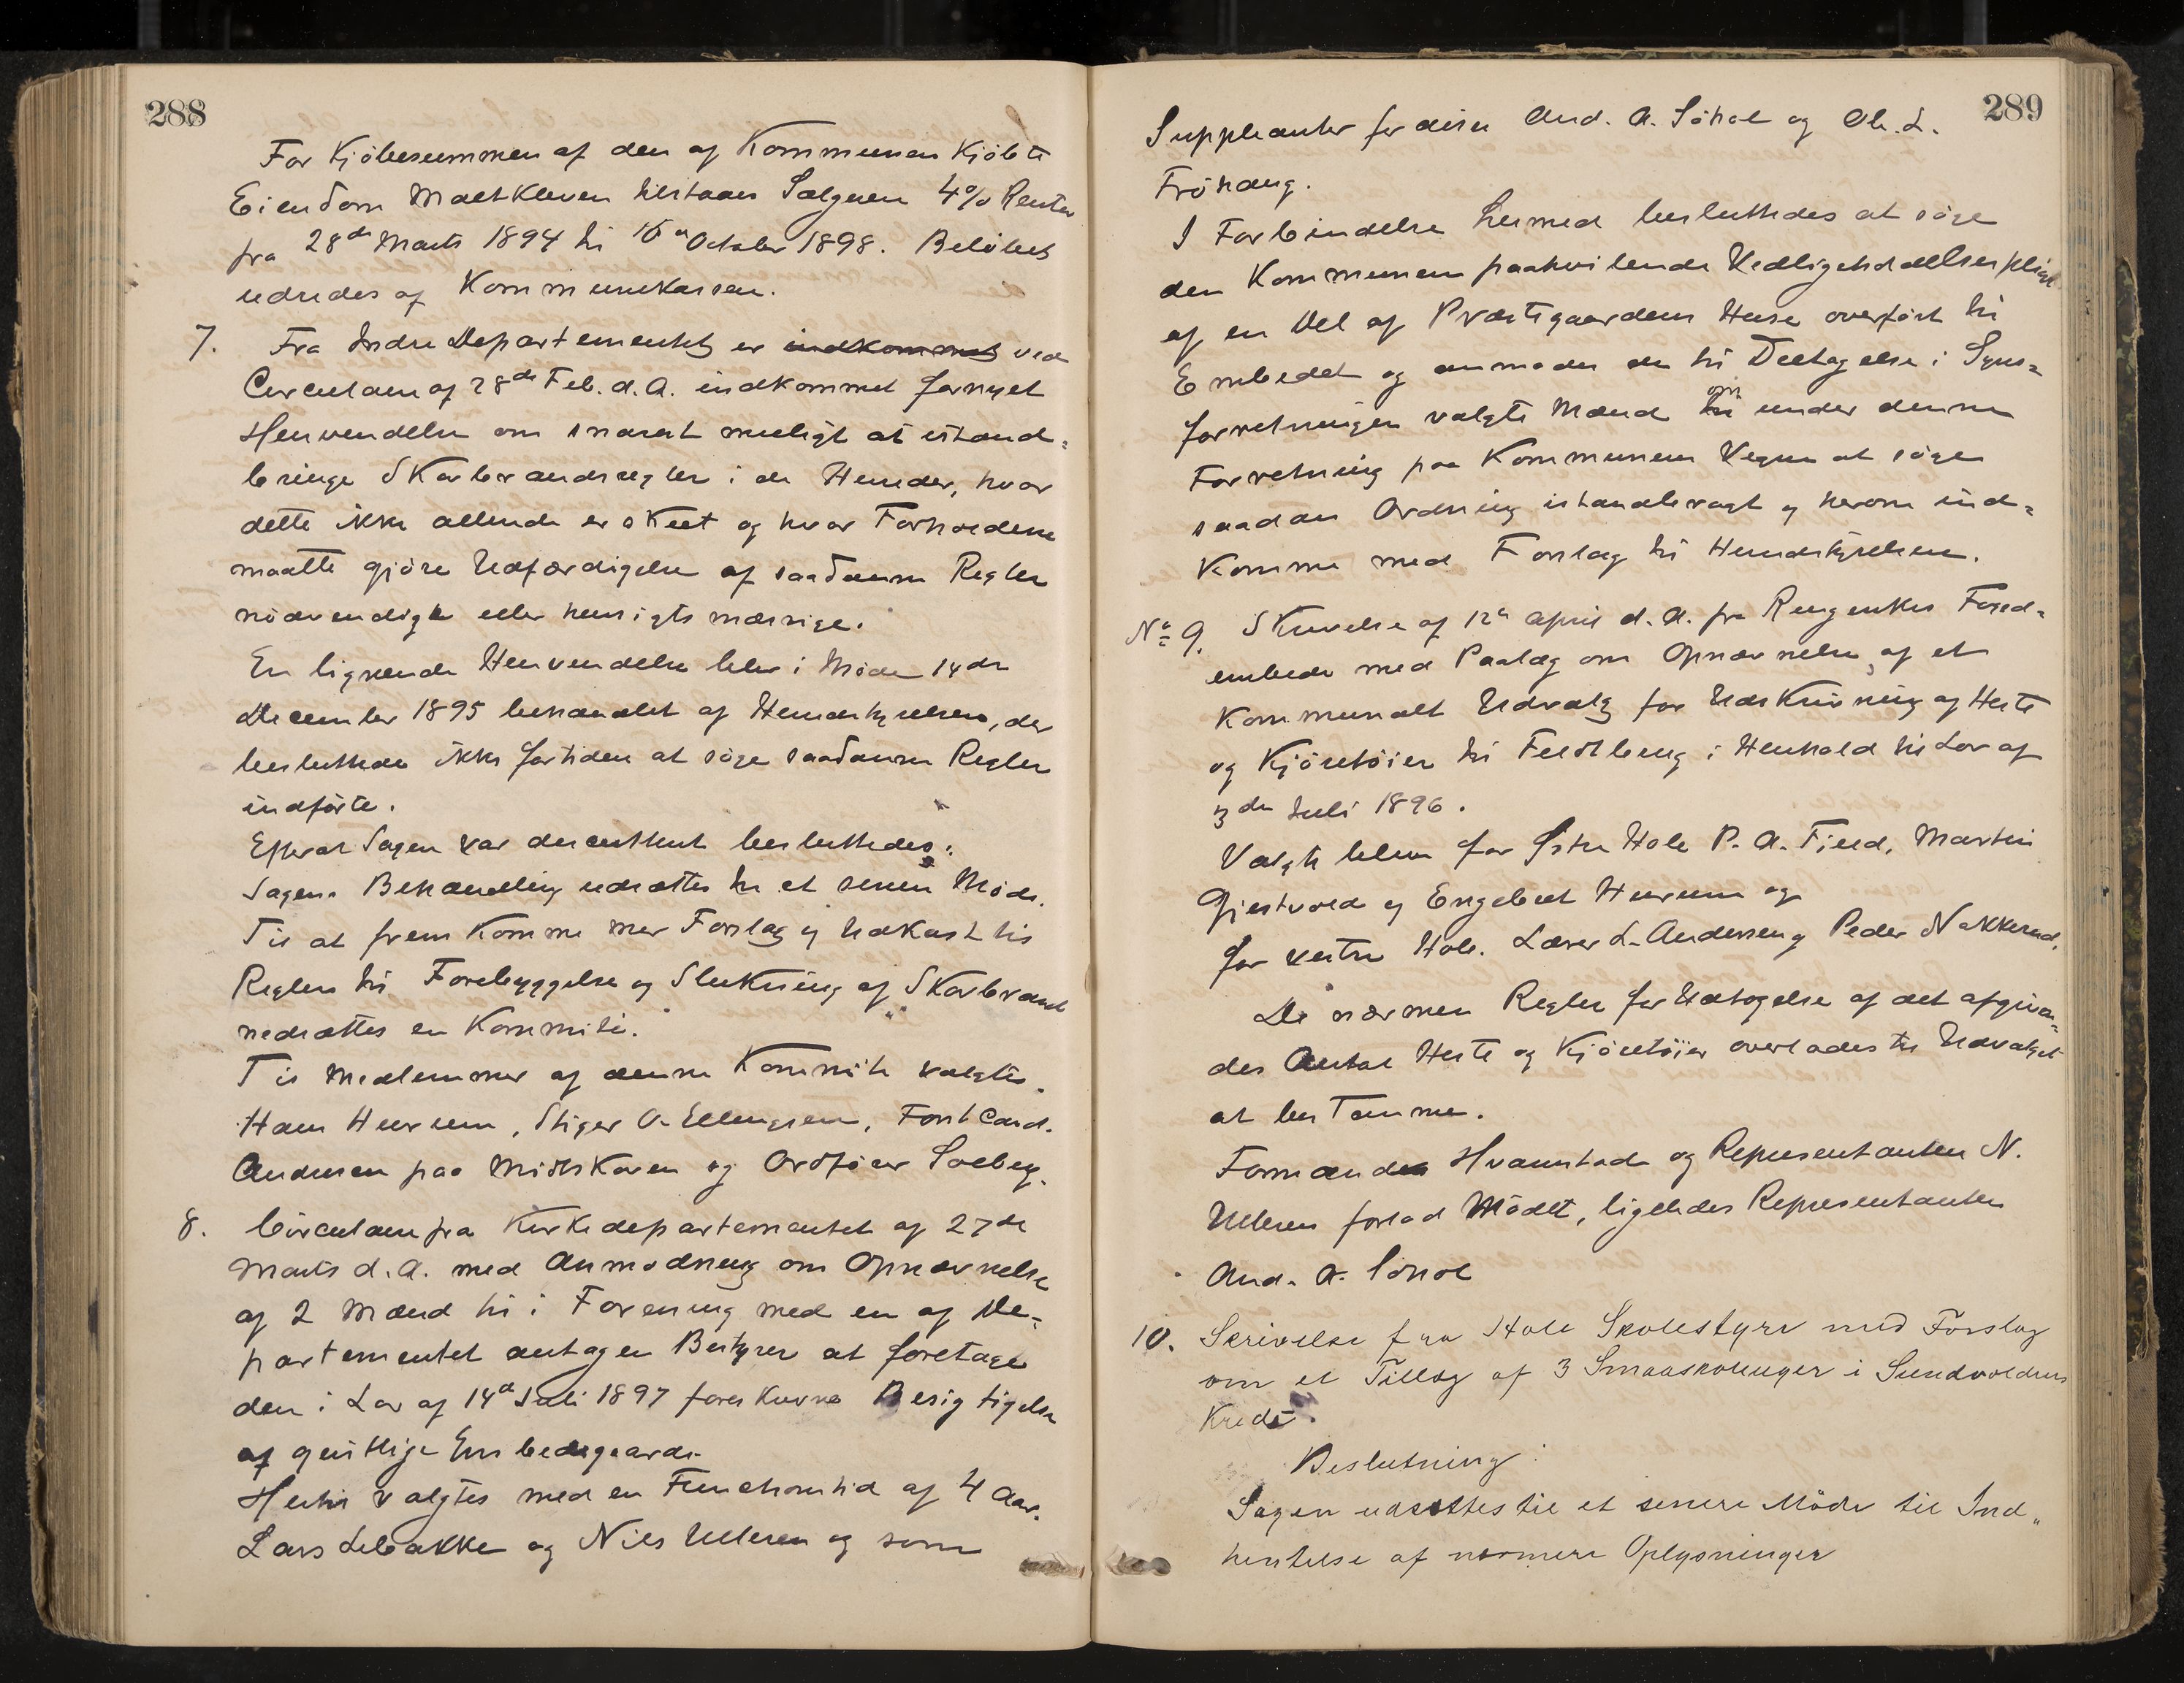 288
For Kjöbesummen af den af Kommunen Kjöbte
Eiendom MaltKleven tilstaaes Sælgeren 4% Renter
fra 28de Marts 1894 til 16de October 1898. Belöbet
udredes af Kommunekassen.
7. Fra Indre Departementet er indkommet ved
Circulære af 28de Feb. d. A. indkommet fornyet
Henvendelse om snarest muligt at istand=
bringe Skovbrandsregler i de Herreder, hvor
dette ikke allerede er skeet og hvor Forholdene
maatte gjöre Udfærdigelse af saadanne Regler
nödvendige eller hensigtsmæssige.
En lignende Henvendelse blev i Möde 14de
December 1895 behandlet af Herredstyrelsen, der
besluttede ikke for tiden at söge saadanne Regler
indförte.
Efterat Sagen var discutteret besluttedes:
Sagens Behandling udsættes til et senere Möde.
Til at fremkomme med Forslag og Udkast til
Regler til Forebyggelse og Slukning af Skovbrand
nedsættes en Kommite.
Til Medlemmer af denne Kommite valgtes
Hans Hurum, Stiger O. Ellingsen, Forstcand.
Andersen paa Midtskoven og Ordförer Solberg.
8. Circulære fra Kirkedepartementet af 27de
Marts d. A. med Anmodning om Opnævnelse
af 2 Mænd til i Forening med en af De=
partementet antagen Bestyrer at foretage
den i Lov af 14de Juli 1897 foreskrevne Besigtigelse
af geistlige Embedsgaarde.
Hertil valgtes med en Functionstid af 4 Aar.
Lars Lebakke og Nils Ulleren og som
289
Suppleanter for disse And. A. Söhol og Ole. L.
Fröhaug.
I Forbindelse hermed besluttedes at söge
den Kommunen paahvilende Vedligeholdelsespligt
af en Del af Præstegaardens Huse overfört til
Embedet og anmodes de til Deltagelse i Syns=
forretningen valgte Mænd til om under denne
Forretning paa Kommunens Vegne at söge
saadan Ordning istandbragt og herom ind=
komme med Forslag til Herredstyrelsen.
No 9. Skrivelse af 12te April d. A. fra Ringerikes Foged=
embede med Paalæg om Opnævnelse af et
Kommunalt Udvalg for Udskrivning af Heste
og Kjöretöier til Feltbrug i Henhold til Lov af
3die Juli 1896.
Valgte bleve for Östre Hole P. A. Fjeld, Martin
Gjestvold og Engebret Hurum og
for vestre Hole. Lærer L. Andersen og Peder Nakkerud.
De nærmere Regler for Udtagelse af det afgiven=
des Antal Heste og Kjöretöier overlades til Udvalget
at bestemme.
Formanden Hvamstad og Repræsentanten N.
Ulleren forlod Mödet, ligeledes Repræsentanten
And. A. Söhol
10. Skrivelse fra Hole Skolestyre med Forslag
om et Tillæg af 3 Smaaskoleuger i Sundvoldens
Kreds.
Beslutning:
Sagen udsættes til et senere Möde til Ind„
hentelse af nærmere Oplysninger